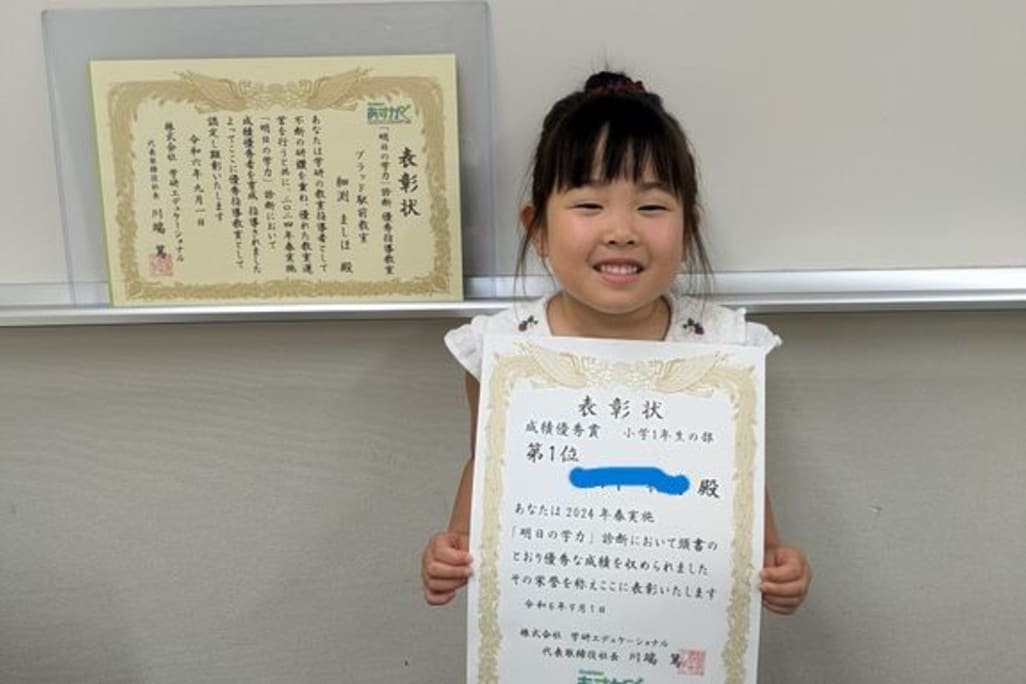 表彰状
「明日の学力」診断 優秀指導教室
プラッド駅前教室
細渕 ましほ 殿
あなたは学研の教室指導者として
不断の研鑽を重ね、優れた教室運
営を行うと共に、二〇二四年春実施
「明日の学力」診断において
成績優秀者を育成 指導されました
よってここに優秀指導教室として
認定し顕彰いたします
令和六年九月一日
株式会社 学研エデュケーショナル
代表取締役社長 川端 篤
あすなろ
表彰状
成績優秀賞 小学1年生の部
第1位
殿
あなたは2024年春実施
「明日の学力」診断において頭書の
とおり優秀な成績を収められました
その栄誉を称えここに表彰いたします
令和6年9月1日
株式会社 学研エデュケーショナル
代表取締役社長 川端 篤